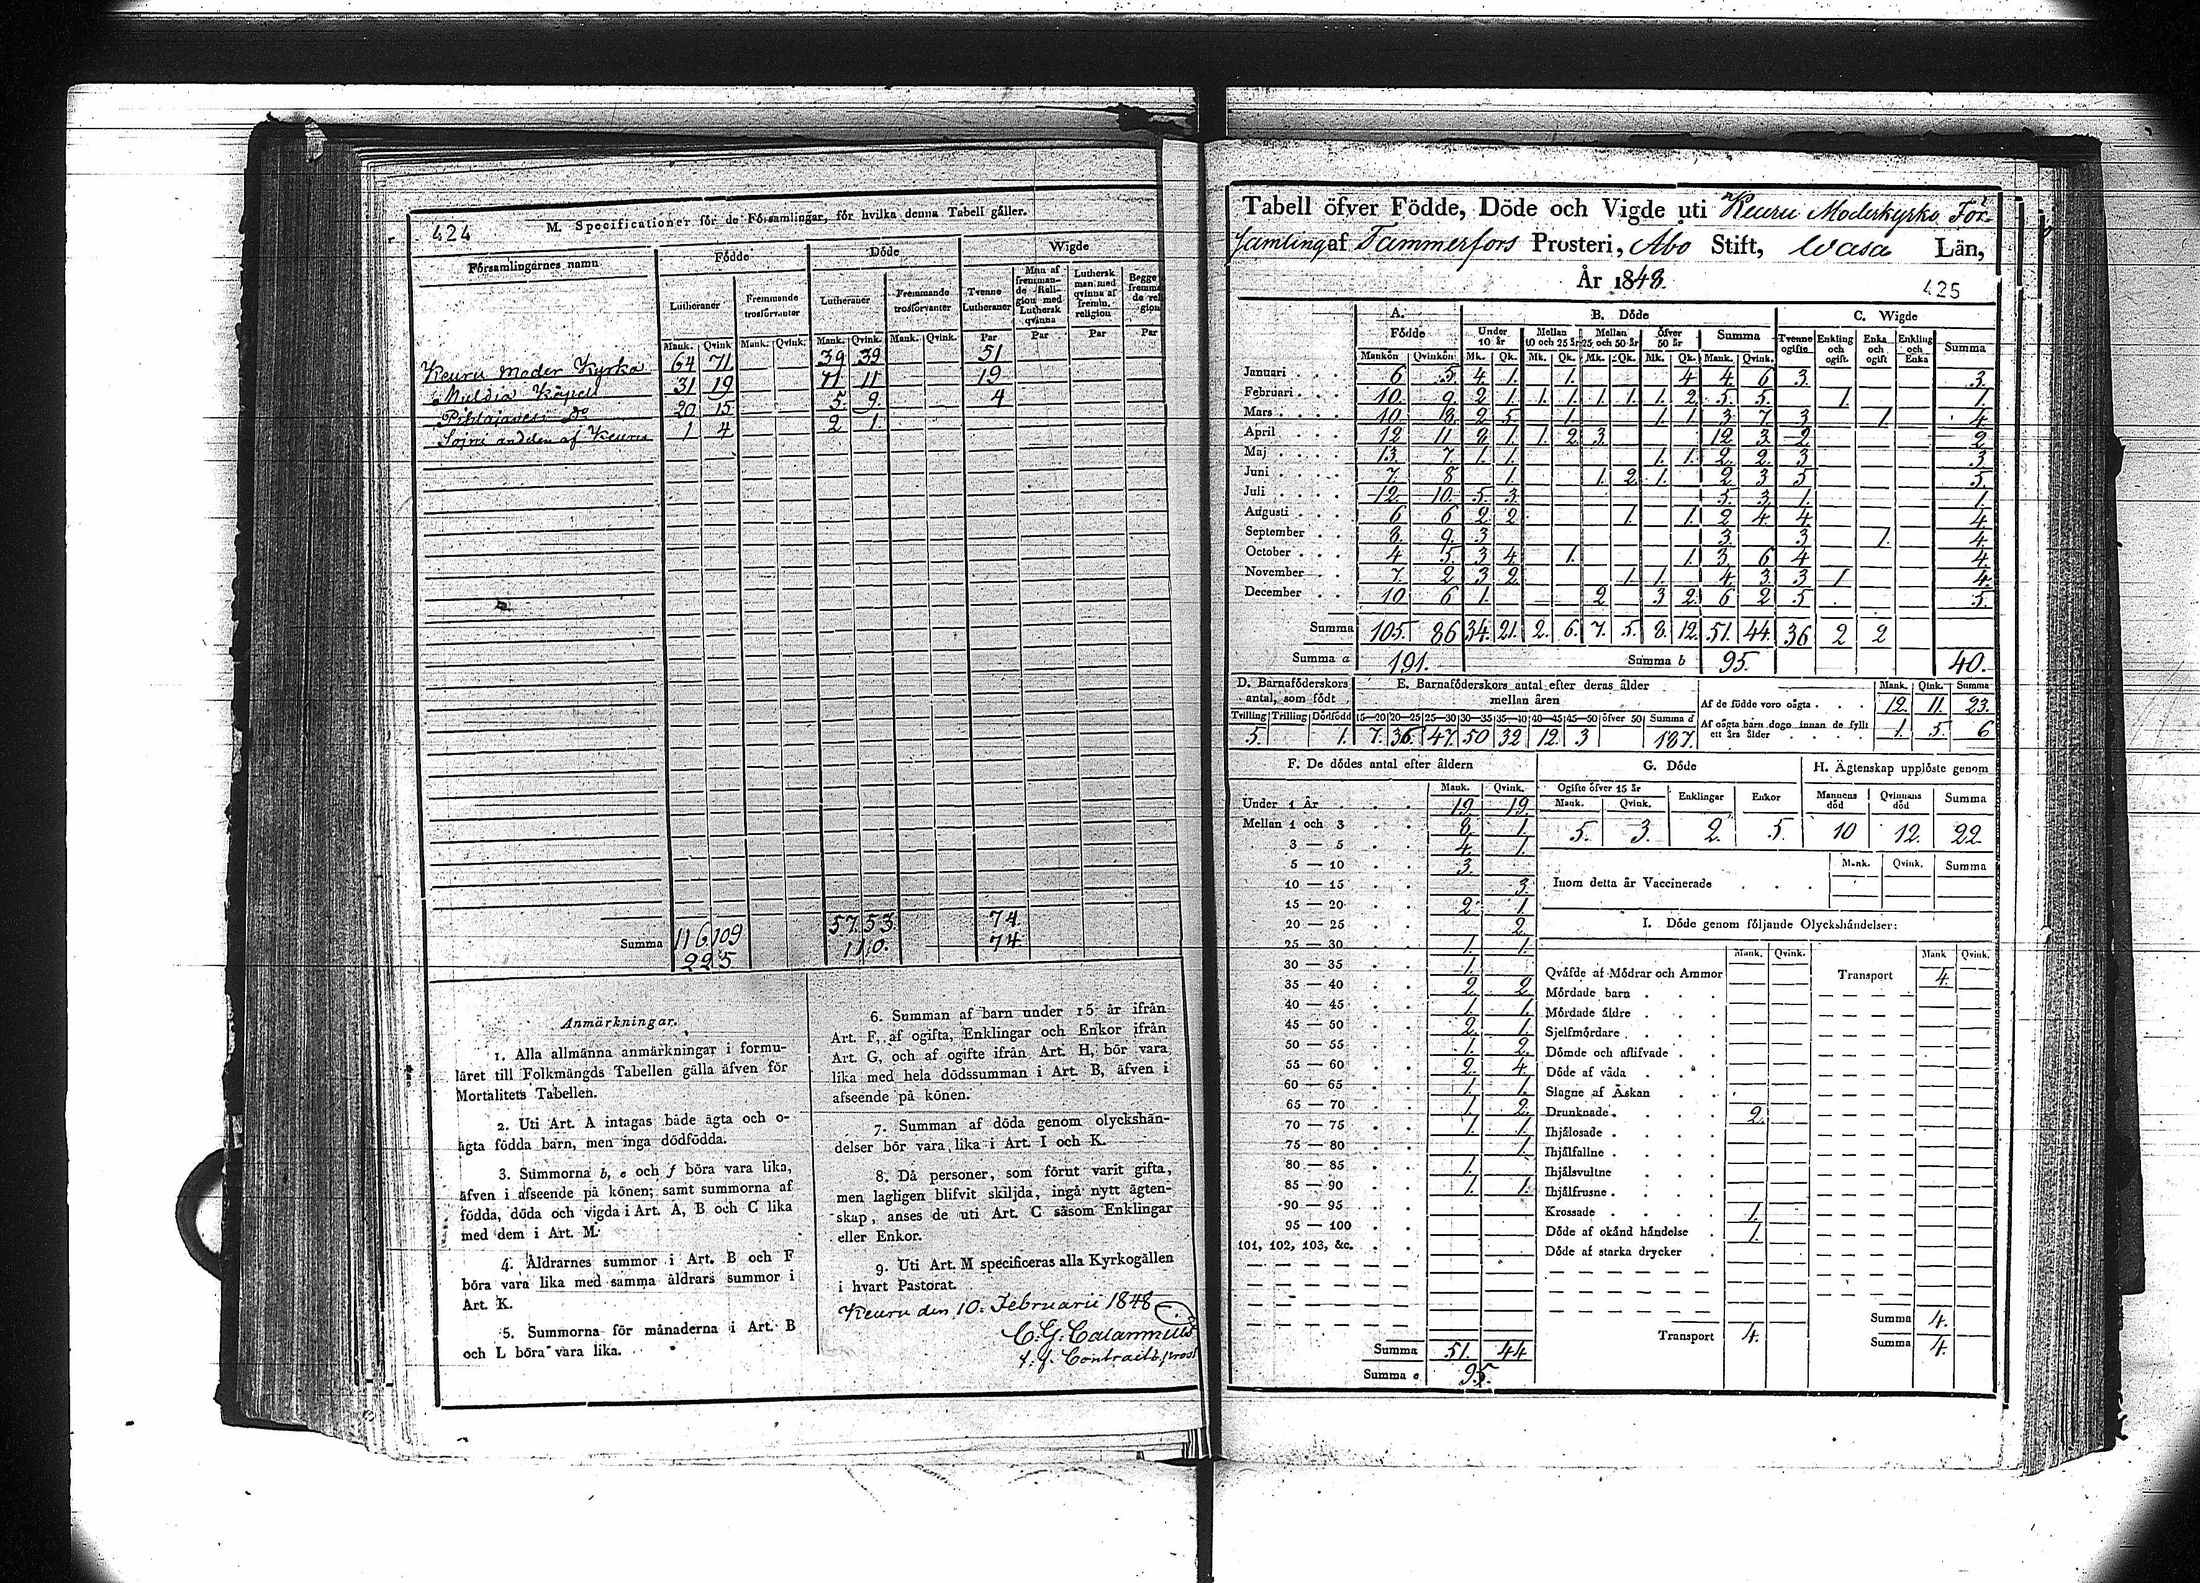 424
M. Specificationer för de Församlingar, för hvilka denna Tabell gäller.
Församlingarnes namn
Födde
Döde
Wigde
Lutheraner
Fremmande trosförvanter
Lutheraner
Fremmande trosförvanter
Tvenne Lutheraner
Man af fremmande Religion med Luthersk qvinna
Luthersk man med qvinna af fremm. religion
Begge fremmande religion
Mank. Qvink. Mank. Qvink. Mank. Qvink. Mank. Qvink. Par Par Par Par
Keuru Moder Kyrka 64 71 39 39 51
Multia Kapell 31 19 11 11 19
Pihlajavesi do 20 15 5. 9. 4
Sojni andelen af Keuru 1 4 2 1
57. 53. 74
Summa 116 109 110. 74
225
Anmärkningar.
1. Alla allmänna anmärkningar i formu-
läret till Folkmängds Tabellen gälla äfven för
Mortalitets Tabellen.
2. Uti Art. A intagas både ägta och o-
ägta födda barn, men inga dödfödda.
3. Summorna b, e och f böra vara lika,
äfven i afseende på könen; samt summorna af
födda, döda och vigda i Art. A, B och C lika
med dem i Art. M.
4. Åldrarnes summor i Art. B och F
böra vara lika med samma åldrars summor i
Art. K.
5. Summorna för månaderna i Art. B
och L böra vara lika.
6. Summan af barn under 15 år ifrån
Art. F, af ogifta, Enklingar och Enkor ifrån
Art. G, och af ogifte ifrån Art. H, bör vara
lika med hela dödssumman i Art. B, äfven i
afseende på könen.
7. Summan af döda genom olyckshän-
delser bör vara lika i Art. I och K.
8. Då personer, som förut varit gifta,
men lagligen blifvit skiljda, ingå nytt ägten-
skap, anses de uti Art. C såsom Enklingar
eller Enkor.
9. Uti Art. M specificeras alla Kyrkogällen
i hvart Pastorat.
Keuru den 10. Februarii 1848
C. G. Calamnius
t. f. Contracts prost
Tabell öfver Födde, Döde och Vigde uti Keuru Moderkyrko För-
samling af Tammerfors Prosteri, Åbo Stift, Wasa Län,
År 1848.
425
A. Födde
B. Döde
C. Wigde
Under 10 år
Mellan 10 och 25 år
Mellan 25 och 50 år
Öfver 50 år
Summa
Tvenne ogifte
Enkling och ogift
Enka och ogift
Enkling och Enka
Summa
Mankön Qvinkön Mk. Qk. Mk. Qk. Mk. Qk. Mk. Qk. Mank. Qvink.
Januari 6 5. 4. 1. 1. 4 4. 6 3. 3.
Februari 10. 9. 2 1. 1. 1. 1. 1. 1. 2. 5. 5. 1. 1.
Mars 10 18. 2 5. 1. 1. 1. 3 7. 3 1 4
April 12 11 8 1. 1. 2. 3. 12 3. 2 2
Maj 13. 7. 1. 1. 1. 1. 2. 2. 3 3.
Juni 7. 8 1. 1. 2. 1. 2 3 5 5.
Juli 12. 10. 5. 3. 5. 3. 1. 1.
Augusti 6 6 2 2 1. 1. 2 4. 4. 4.
September 8. 9. 3. 3. 3 1. 4.
October 4 5. 3 4. 1. 1. 3. 6 4 4.
November 7. 2 3 2. 1. 1. 4. 3 3 1 4.
December 10 6 1. 2. 3 2. 6 2 5 5.
Summa 105. 86 34. 21. 2. 6. 7. 5. 8. 12. 51. 44. 36 2 2
Summa a 191. Summa b 95. 40.
D. Barnaföderskors antal, som födt
E. Barnaföderskors antal efter deras ålder mellan åren
Mank. Qink. Summa
Af de födde voro oägta 12. 11. 23.
Af oägta barn dogo innan de fyllt ett års ålder 1. 5. 6
Tvilling Trilling Dödfödd 15—20 20—25 25—30 30—35 35—40 40—45 45—50 öfver 50 Summa d
5. 1. 7. 36. 47. 50 32 12. 3 187.
F. De dödes antal efter åldern
Mank. Qvink.
Under 1 År 19 19.
Mellan 1 och 3 8. 1.
3 — 5 4. 1.
5 — 10 3.
10 — 15 3.
15 — 20 2 1.
20 — 25 2
25 — 30 1. 1.
30 — 35 1.
35 — 40 2 2
40 — 45 1. 1.
45 — 50 2. 1.
50 — 55 1. 2.
55 — 60 2. 4.
60 — 65 1. 1.
65 — 70 1. 2.
70 — 75 1. 1.
75 — 80 1.
80 — 85 1.
85 — 90 1. 1.
90 — 95
95 — 100
101, 102, 103, &c.
Summa 51. 44
Summa e 95.
G. Döde
Ogifte öfver 15 år
Mank. Qvink.
Enklingar
Enkor
5. 3. 2. 5.
H. Ägtenskap upplöste genom
Mannens död
Qvinnans död
Summa
10 12. 22.
Mank. Qvink. Summa
Inom detta år Vaccinerade
I. Döde genom följande Olyckshändelser:
Mank. Qvink. Mank Qvink.
Qväfde af Mödrar och Ammor Transport 4.
Mördade barn
Mördade äldre
Sjelfmördare
Dömde och aflifvade
Döde af våda
Slagne af Åskan
Drunknade 2.
Ihjälosade
Ihjälfallne
Ihjälsvultne
Ihjälfrusne
Krossade 1.
Döde af okänd händelse 1.
Döde af starka drycker
Summa 4.
Transport 4. Summa 4.